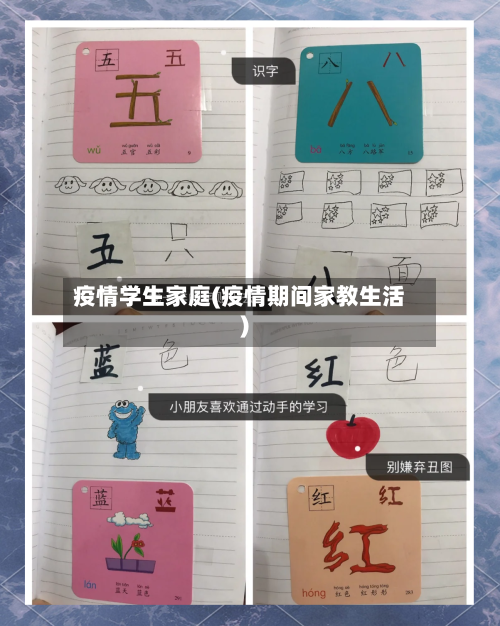 五
五
wǔ
五官 五彩
识字
八
八
bā
八方 八路军
五 只
八 面
疫情学生家庭(疫情期间家教生活
)
蓝 色
红 色
小朋友喜欢通过动手的学习
别嫌弃丑图
蓝
蓝
lán
蓝天 蓝色
红
红
红
hóng
红色 红彤彤